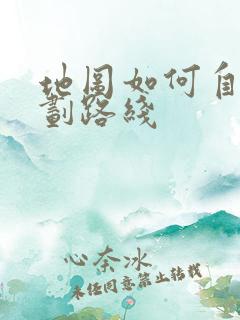 地图如何自
劃路綫
心奈冰
未经同意禁止转载